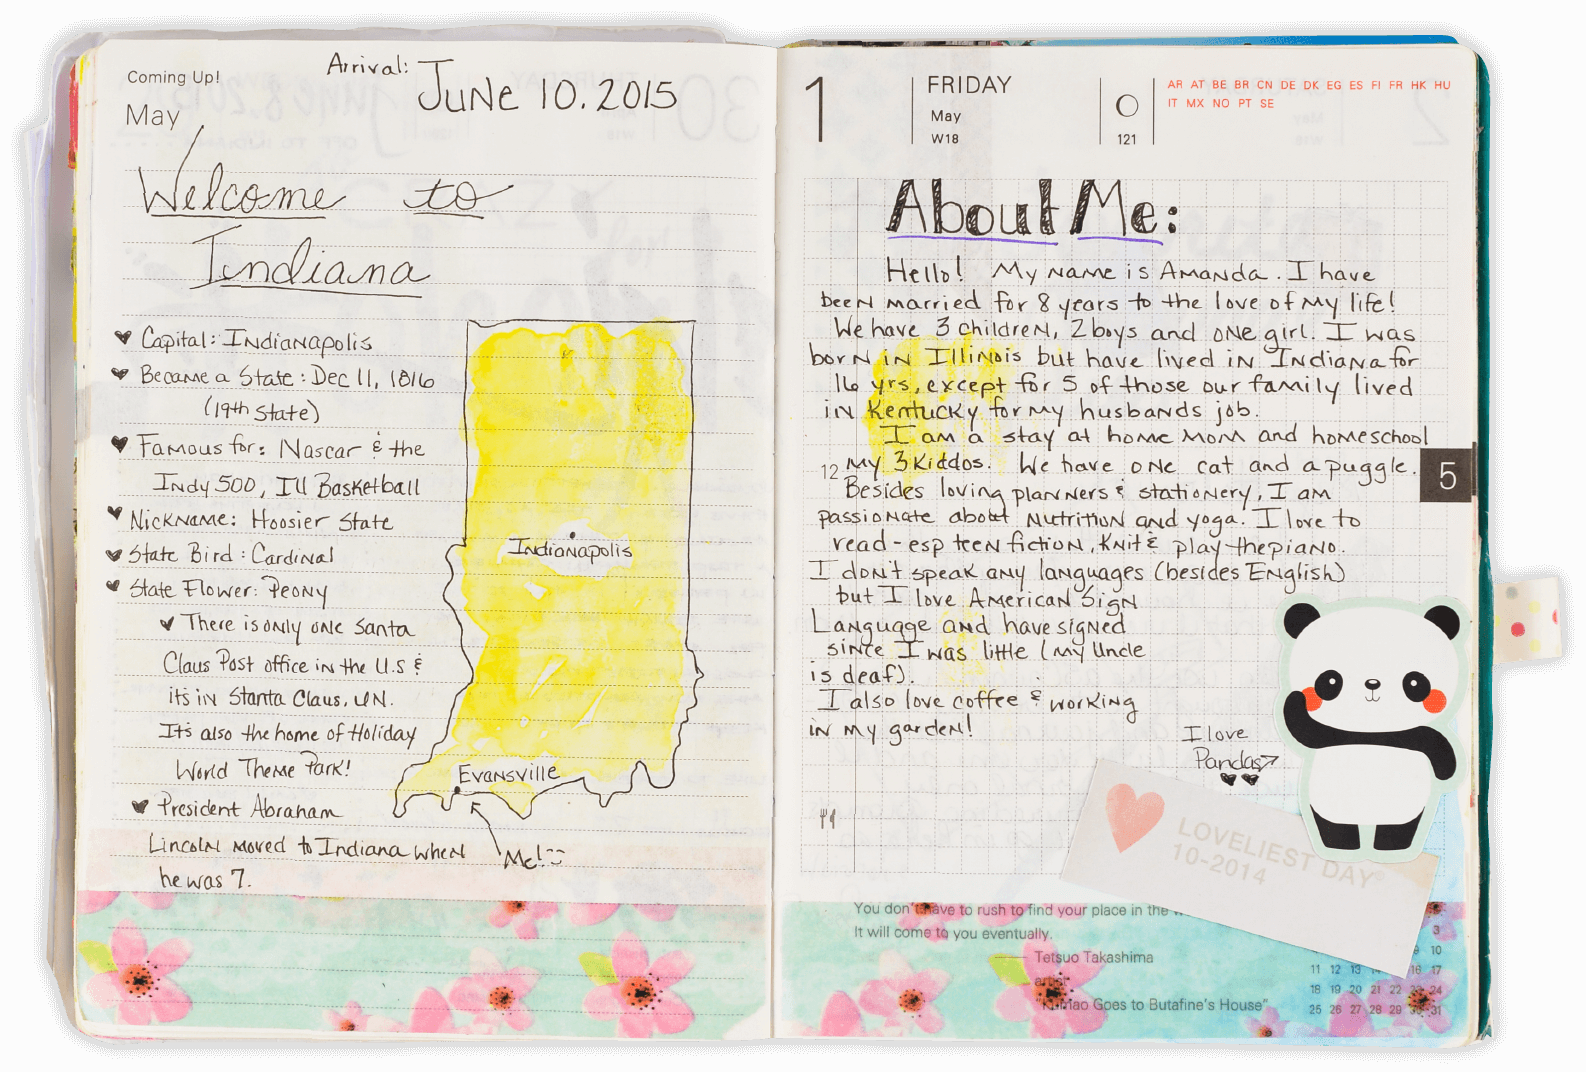 Coming Up!
May
Arrival: June 10. 2015
Welcome to
Indiana
Capital: Indianapolis
Became a State: Dec 11, 1816
(19th State)
Famous for: Nascar & the
Indy 500, IU Basketball
Nickname: Hoosier State
State Bird: Cardinal
State Flower: Peony
There is only one Santa
Claus Post office in the U.S &
its in Stanta Claus, IN.
It's also the home of Holiday
World Theme Park!
President Abraham
Lincoln moved to Indiana when
he was 7.
Indianapolis
Evansville
Me!
1
FRIDAY
May
W18
121
AR AT BE BR CN DE DK EG ES FI FR HK HU
IT MX NO PT SE
About Me:
Hello! My name is Amanda. I have
been married for 8 years to the love of my life!
We have 3 children, 2 boys and one girl. I was
born in Illinois but have lived in Indiana for
16 yrs, except for 5 of those our family lived
in Kentucky for my husbands job.
I am a stay at home mom and homeschool
12 my 3 kiddos. We have one cat and a puggle.
Besides loving planners & stationery, I am
passionate about nutrition and yoga. I love to
read - esp teen fiction, knit & play the piano.
I don't speak any languages (besides English)
but I love American Sign
Language and have signed
since I was little (my Uncle
is deaf).
I also love coffee & working
in my garden!
5
I love
Pandas
LOVELIEST DAY
10-2014
You don't have to rush to find your place in the
It will come to you eventually.
Tetsuo Takashima
artist
Goes to Butafine's House"
3
9 10
11 12 13 14 16 17
18 19 20 21 22 23 24
25 26 27 28 29 30 31